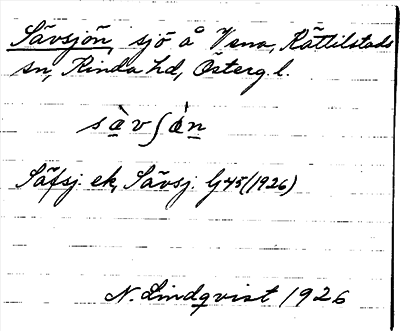 Sävsjön, sjö å Vena, Kättilstads
sn, Kinda hd, Österg. l.
sὰvʃὰn
Säfsj. ek, Sävsj. G 45 (1926)
N. Lindqvist 1926